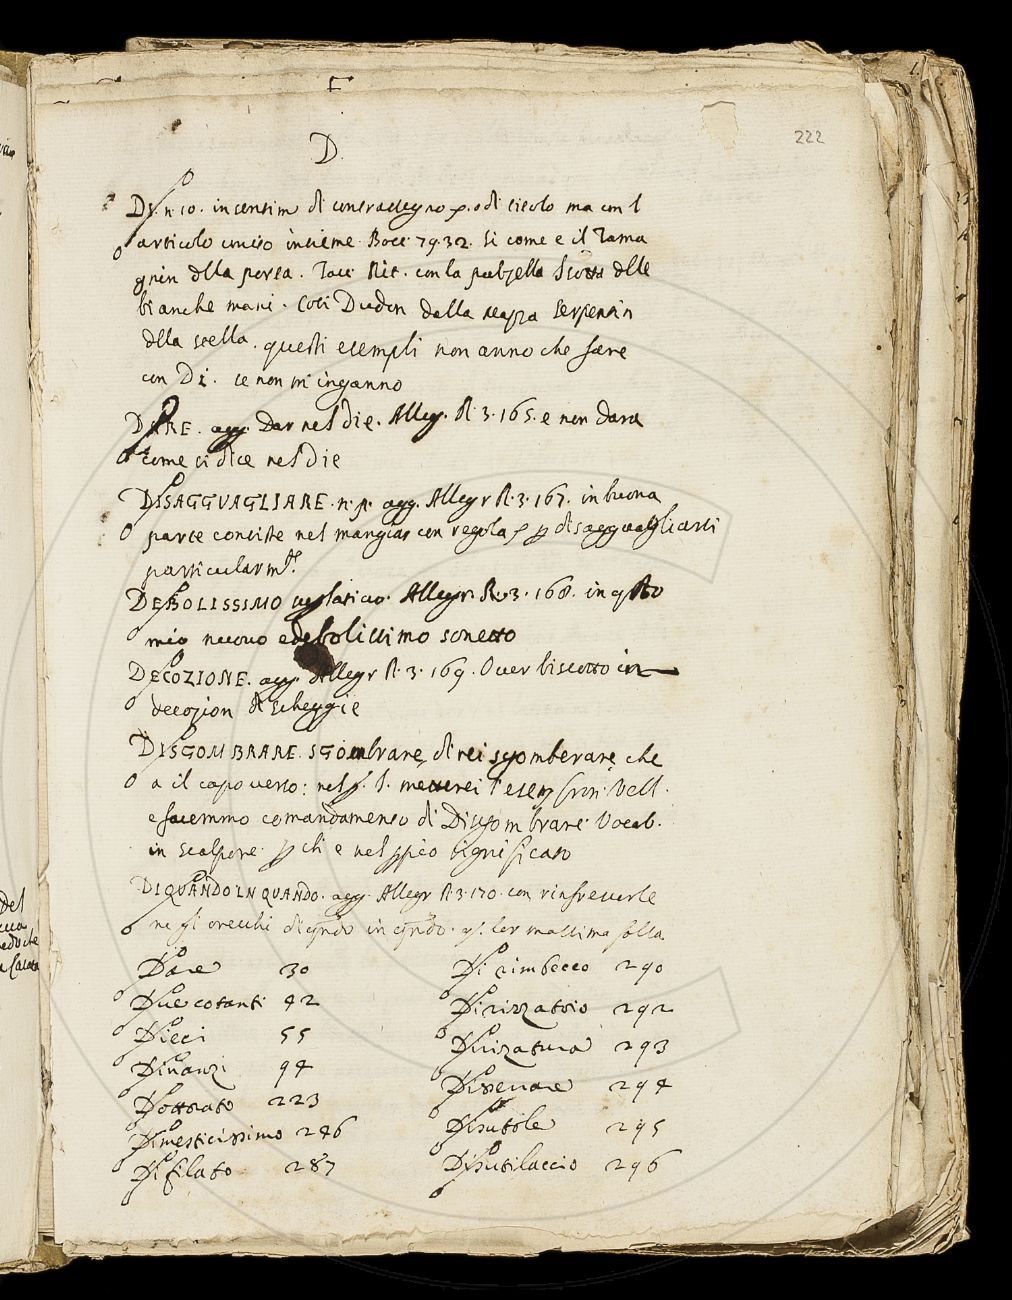 D.
222
DI. n. 10. in sentim di contrassegno p. o di titolo ma con l
articolo unito insieme. Bocc. 79. 32. Si come e il Tama
gnin dlla porta. Tacc. Rit. con la pulzella Scotta dlle
bianche mani. Cosi Dudon dalla mazza Serpentin
dlla stella. questi esempli non anno che fare
con Di. se non m'inganno
DARE. agg. Dar nel die. Allegr. R. 3. 165. e non dara
come si dice nel die
DISAGGUAGLIARE. n. p. agg. Allegr R. 3. 167. in buona
parte consiste nel mangiar con regola p disagguagliarsi
particularmte.
DEBOLISSIMO superlativo. Allegr. R. 3. 168. in qsto
mio nuovo e debolissimo sonetto
DECOZIONE. agg. Allegr R. 3. 169. Over biscotto in
decozion di scheggie
DISGOMBRARE. SGombrare, direi sgomberare, che
a il capoverso: nel §. I. metterei l'esemp. Vell.
e facemmo comandamento di Disgombrare. Vocab.
in scalpore. p ch e nel pprio significato
DI QUANDO IN QUANDO. agg. Allegr R. 3. 170. con rinfrescarle
ne gl orecchi di qndo in qndo. qs. lor massima solla
Dare 30
Due cotanti 42
Dieci 55
Dinanzi 94
Dottorato 223
Dimesticissimo 246
Difilato 287
Di rimbecco 290
Dirizzatoio 292
Dirizatura 293
Disserrare 294
Disutile 295
Disutilaccio 296